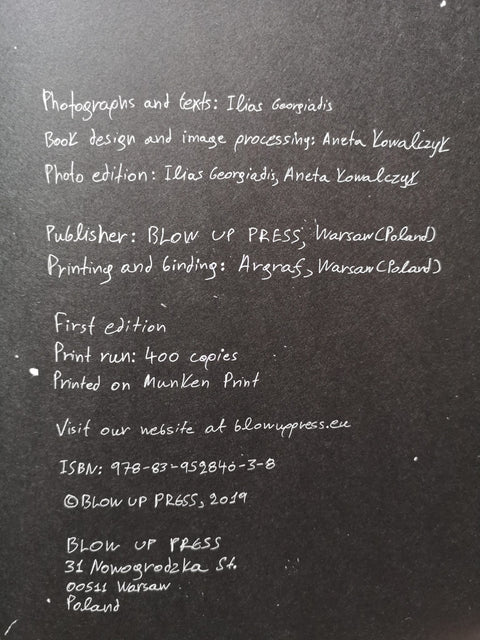 Photographs and texts: Ilias Georgiadis
Book design and image processing: Aneta Kowalczyk
Photo edition: Ilias Georgiadis, Aneta Kowalczyk
Publisher: BLOW UP PRESS, Warsaw (Poland)
Printing and binding: Argraf, Warsaw (Poland)
First edition
Print run: 400 copies
Printed on Munken Print
Visit our website at blowuppress.eu
ISBN: 978-83-952840-3-8
©BLOW UP PRESS, 2019
BLOW UP PRESS
31 Nowogrodzka St.
00511 Warsaw
Poland